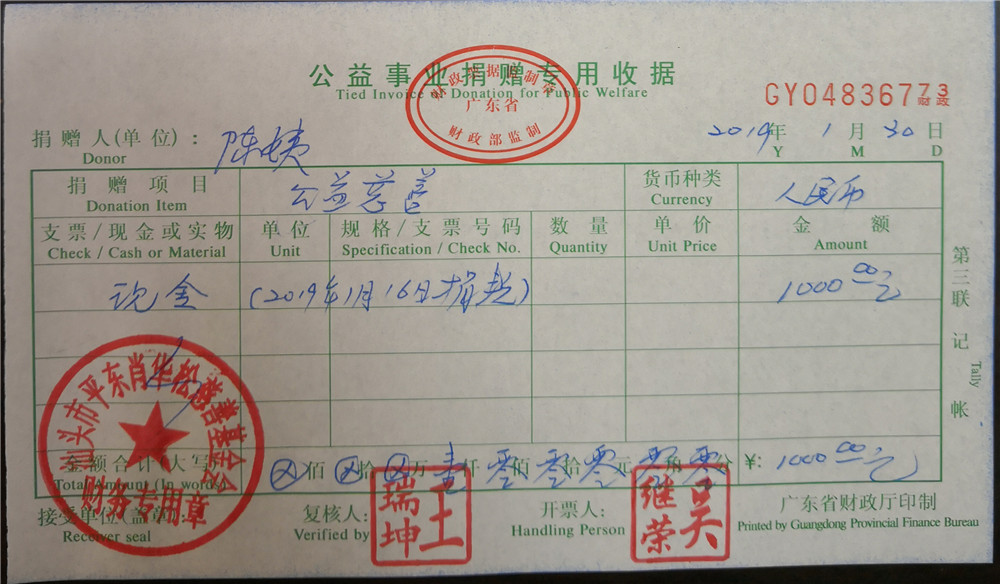 公益事业捐赠专用收据
Tied Invoice of Donation for Public Welfare
财政票据监制章
广东省
财政部监制
GY04836773
财政
捐赠人(单位): 陈姨
Donor
2019年 1月 30日
Y M D
捐赠项目 公益慈善 货币种类 人民币
Donation Item Currency
支票/现金或实物 单位 规格/支票号码 数量 单价 金额
Check / Cash or Material Unit Specification / Check No. Quantity Unit Price Amount
现金 (2019年1月16日捐款) 1000.00元
第三联 记帐
Tally
汕头市平东肖华松慈善基金会
财务专用章
金额合计(大写) ⊗佰⊗拾⊗万壹仟零佰零拾零元零角零分 ¥: 1000.00元
Total Amount (In words)
接受单位(盖章) 复核人: 王瑞坤 开票人: 吴继荣 广东省财政厅印制
Receiver seal Verified by Handling Person Printed by Guangdong Provincial Finance Bureau